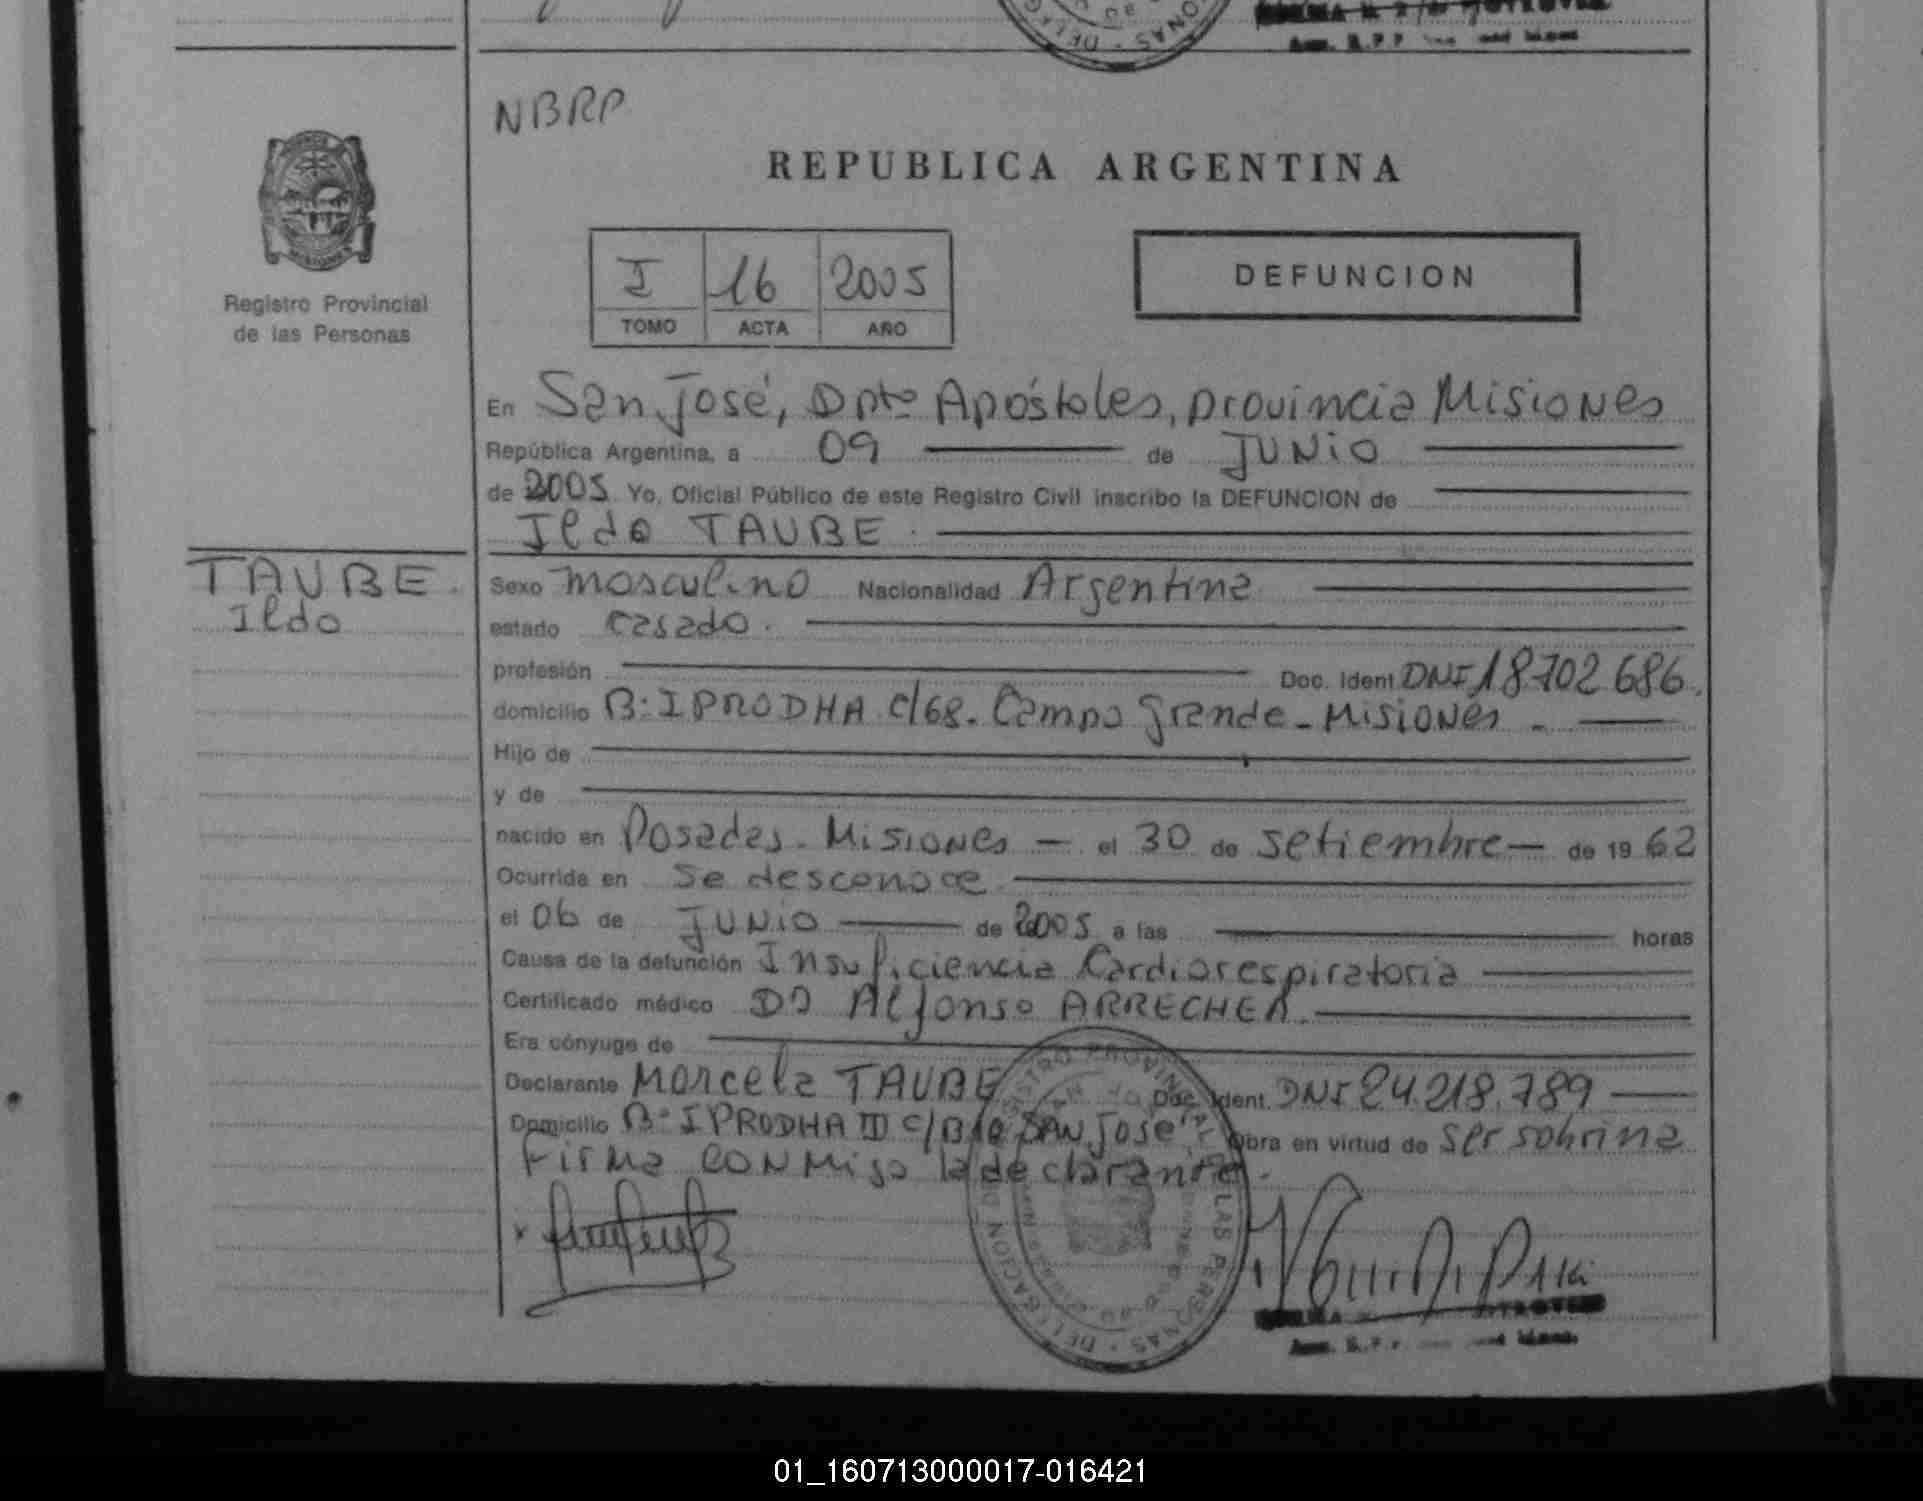 NBRP
REPUBLICA ARGENTINA
Registro Provincial
de las Personas
I 16 2005
TOMO ACTA AÑO
DEFUNCION
En San José, Dpto Apóstoles, provincia Misiones
República Argentina, a 09 de JUNIO
de 2005 Yo, Oficial Público de este Registro Civil inscribo la DEFUNCION de
Ildo TAUBE
TAUBE.
Ildo
Sexo masculino Nacionalidad Argentina
estado casado.
profesión Doc. Ident DNI 18702686.
domicilio B: IPRODHA C/68. Campo Grande - Misiones -
Hijo de
y de
nacido en Posadas - Misiones - el 30 de setiembre - de 1962
Ocurrida en Se desconoce
el 06 de JUNIO de 2005 a las horas
Causa de la defunción Insuficiencia Cardiorespiratoria
Certificado médico Dr Alfonso ARRECHEA.
Era cónyuge de
Declarante Marcela TAUBE Doc. Ident. DNI 24.218.789
Domicilio B: IPRODHA III San José Obra en virtud de ser sobrina
Firma conmigo la declarante.
REGISTRO PROVINCIAL DE LAS PERSONAS · DELEGACION
01_160713000017-016421